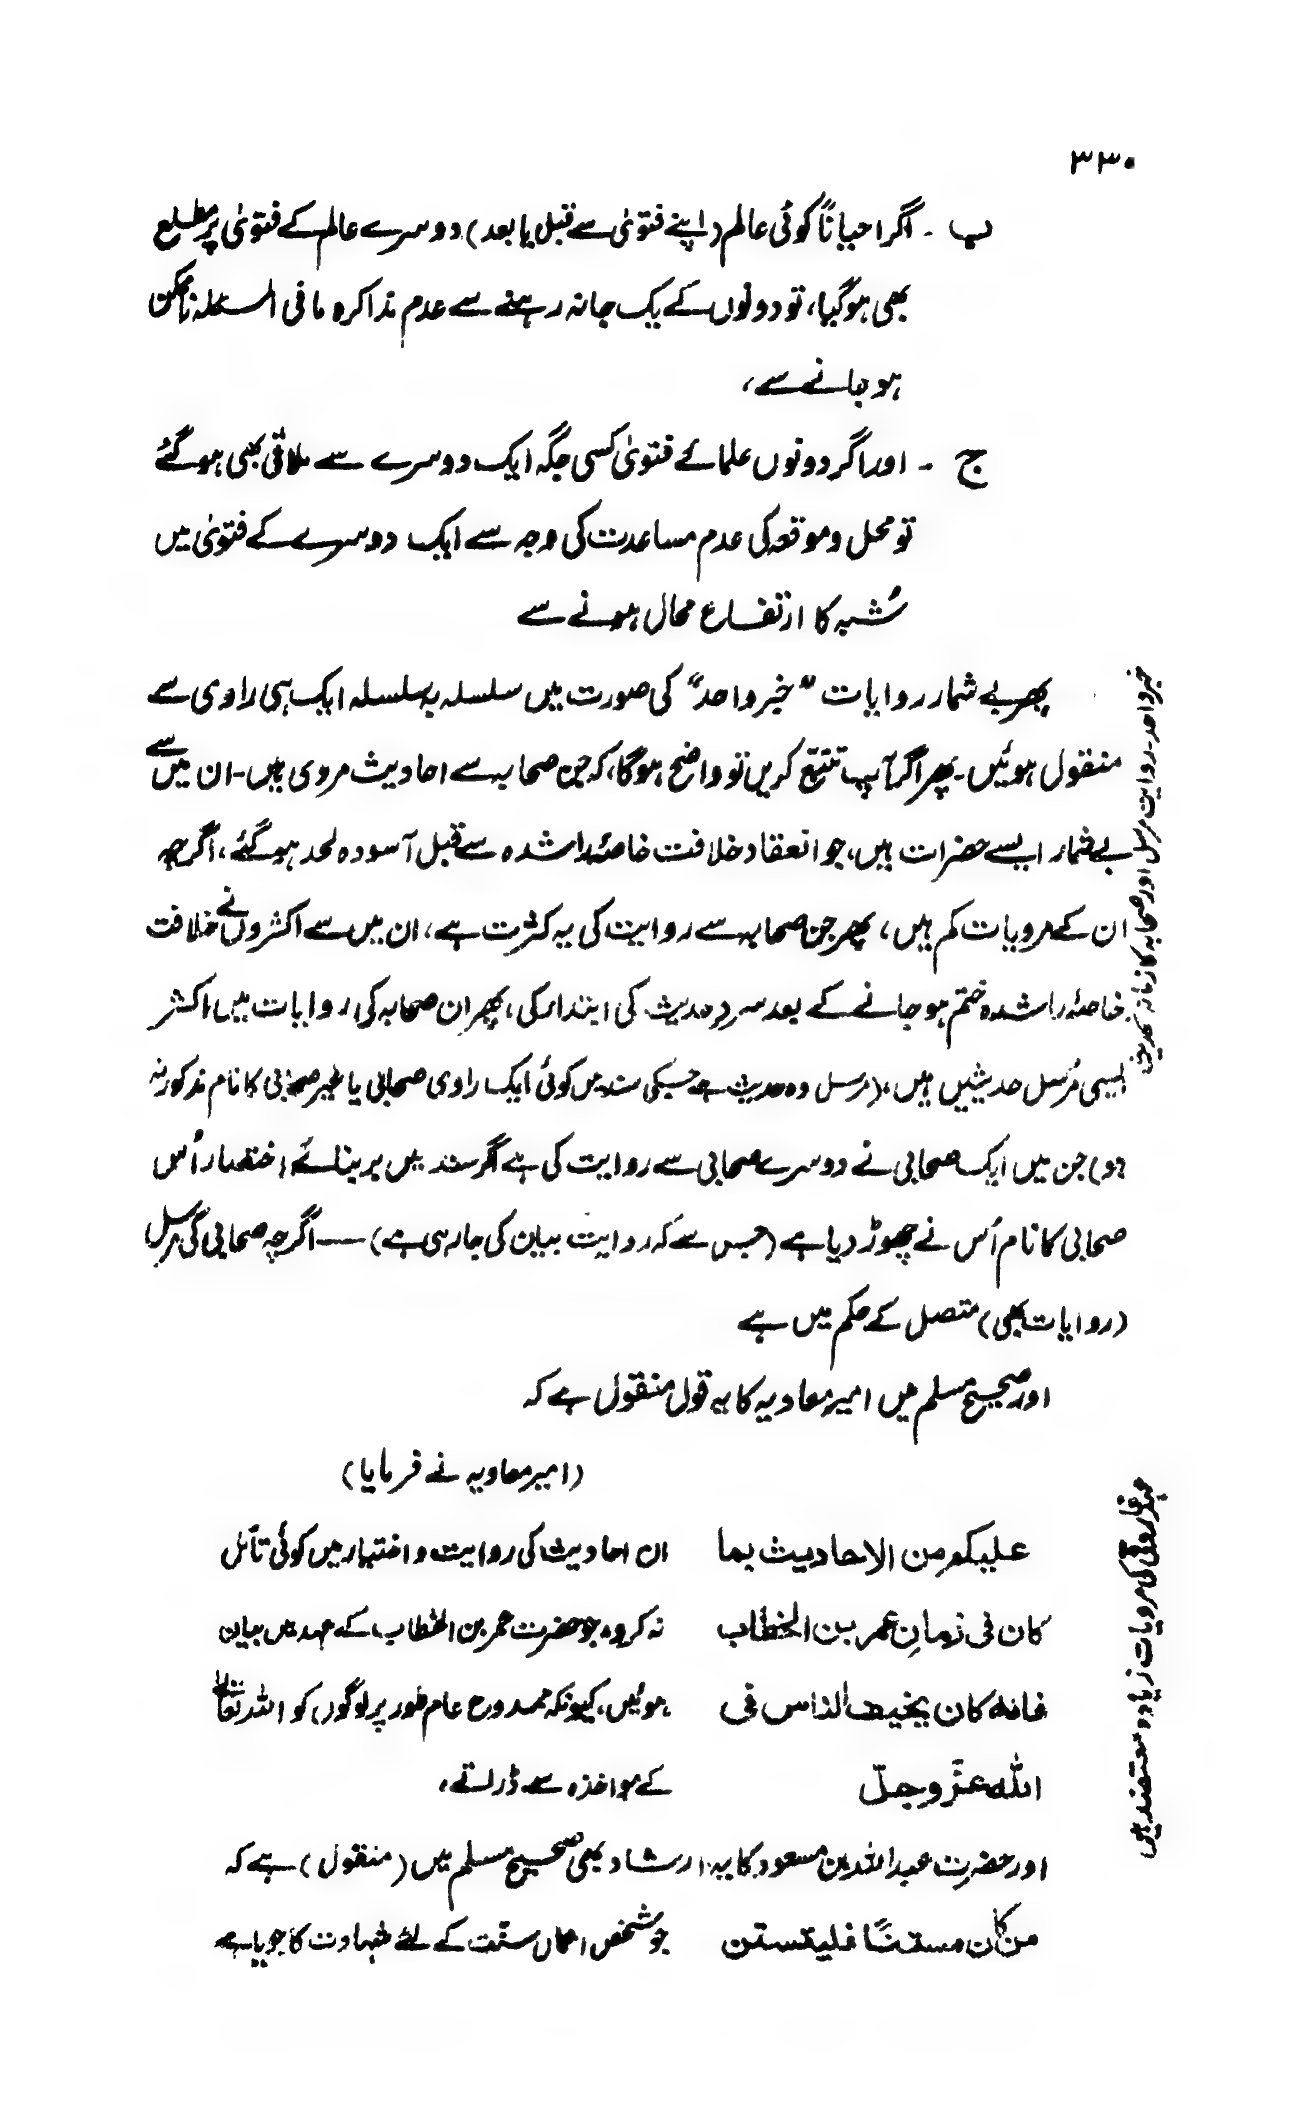 ۳۳۰
ب ۔ اگر احیاناً کوئی عالم (اپنے فتویٰ سے قبل یا بعد) دوسرے عالم کے فتویٰ پر مطلع
بھی ہوگیا، تو دونوں کے یک جا نہ رہنے سے عدم مذاکرہ ما فی المسئلہ ناممکن
ہو جانے سے،
ج ۔ اور اگر دونوں علمائے فتویٰ کسی جگہ ایک دوسرے سے ملاقی بھی ہوگئے
تو محل و موقعہ کی عدم مساعدت کی وجہ سے ایک دوسرے کے فتویٰ میں
شُبہ کا ارتفاع محال ہونے سے
پھر بے شمار روایات ”خبر واحد“ کی صورت میں سلسلہ بہ سلسلہ ایک ہی راوی سے
منقول ہوئیں۔ پھر اگر آپ تتبّع کریں تو واضح ہوگا، کہ جن صحابہ سے احادیث مروی ہیں۔ ان میں سے
بے شمار ایسے حضرات ہیں، جو انعقاد خلافت خاصۂ راشدہ سے قبل آسودہ لحد ہوگئے، اگرچہ
ان کے مرویات کم ہیں، پھر جن صحابہ سے روایت کی یہ کثرت ہے، ان میں سے اکثروں نے خلافت
خاصۂ راشدہ ختم ہو جانے کے بعد سرد حدیث کی ابتدا کی، پھر ان صحابہ کی روایات میں اکثر
ایسی مُرسل حدیثیں ہیں، (مرسل وہ حدیث ہے جسکی سند میں کوئی ایک راوی صحابی یا غیر صحابی کا نام مذکور نہ
ہو) جن میں ایک صحابی نے دوسرے صحابی سے روایت کی ہے مگر سند میں بر بنائے اختصار اُس
صحابی کا نام اُس نے چھوڑ دیا ہے (جس سے کہ روایت بیان کی جا رہی ہے) — اگرچہ صحابی کی مرسل
(روایات بھی) متصل کے حکم میں ہے
اور صحیح مسلم میں امیر معاویہ کا یہ قول منقول ہے کہ
(امیر معاویہ نے فرمایا)
علیکم من الاحادیث بما ان احادیث کی روایت و اختیار میں کوئی تأمل
کان فی زمانِ عمر بن الخطاب نہ کرو، جو حضرت عمر بن الخطاب کے عہد میں بیان
فانہ کان یخیف الناس فی ہوئیں، کیونکہ ممدوح عام طور پر لوگوں کو اللہ تعالیٰ
اللہ عزّ وجلّ کے مواخذہ سے ڈراتے،
اور حضرت عبداللہ بن مسعود کا یہ ارشاد بھی صحیح مسلم میں (منقول) ہے کہ
من کان مستناً فلیتستن جو شخص اعمال سنّت کے لئے شہادت کا جویا ہے
خبر واحد۔ روایت مرسل اور صحابہ کا زمانہ تحدیث
عہد فاروقی کی مرویات زیادہ معتمد ہیں